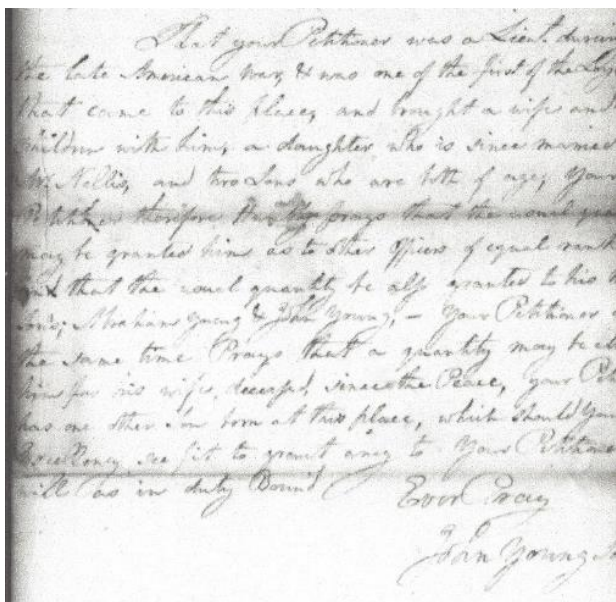 That your Petitioner was a Lieut. durin
the late American War, & was one of the first of the Loy
that came to this place, and brought a wife and
children with him, a daughter who is since married
Mr. Nellis, and two Sons who are both of age; Your
therefore Humbly prays that the usual qua
may be granted him as to other officers of equal rank
and that the usual quantity be also granted to his
Sons; Abraham Young & John Young, - Your Petitioner
the same time Prays that a quantity may be
him for his wife, deceased, since the Peace, your Peti
has one other Son born at this place, which should You
see fit to grant any to Your Petitione
will as in duty Bound
Ever Pray
John Young